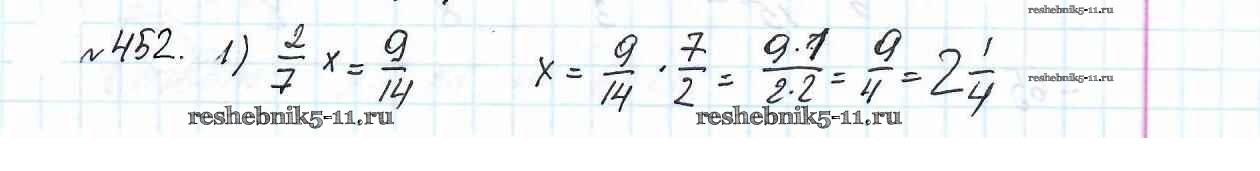 reshebnik5-11.ru
№452. 1) 2/7 x = 9/14 x = 9/14 · 7/2 = 9·1/2·2 = 9/4 = 2 1/4
reshebnik5-11.ru
reshebnik5-11.ru reshebnik5-11.ru